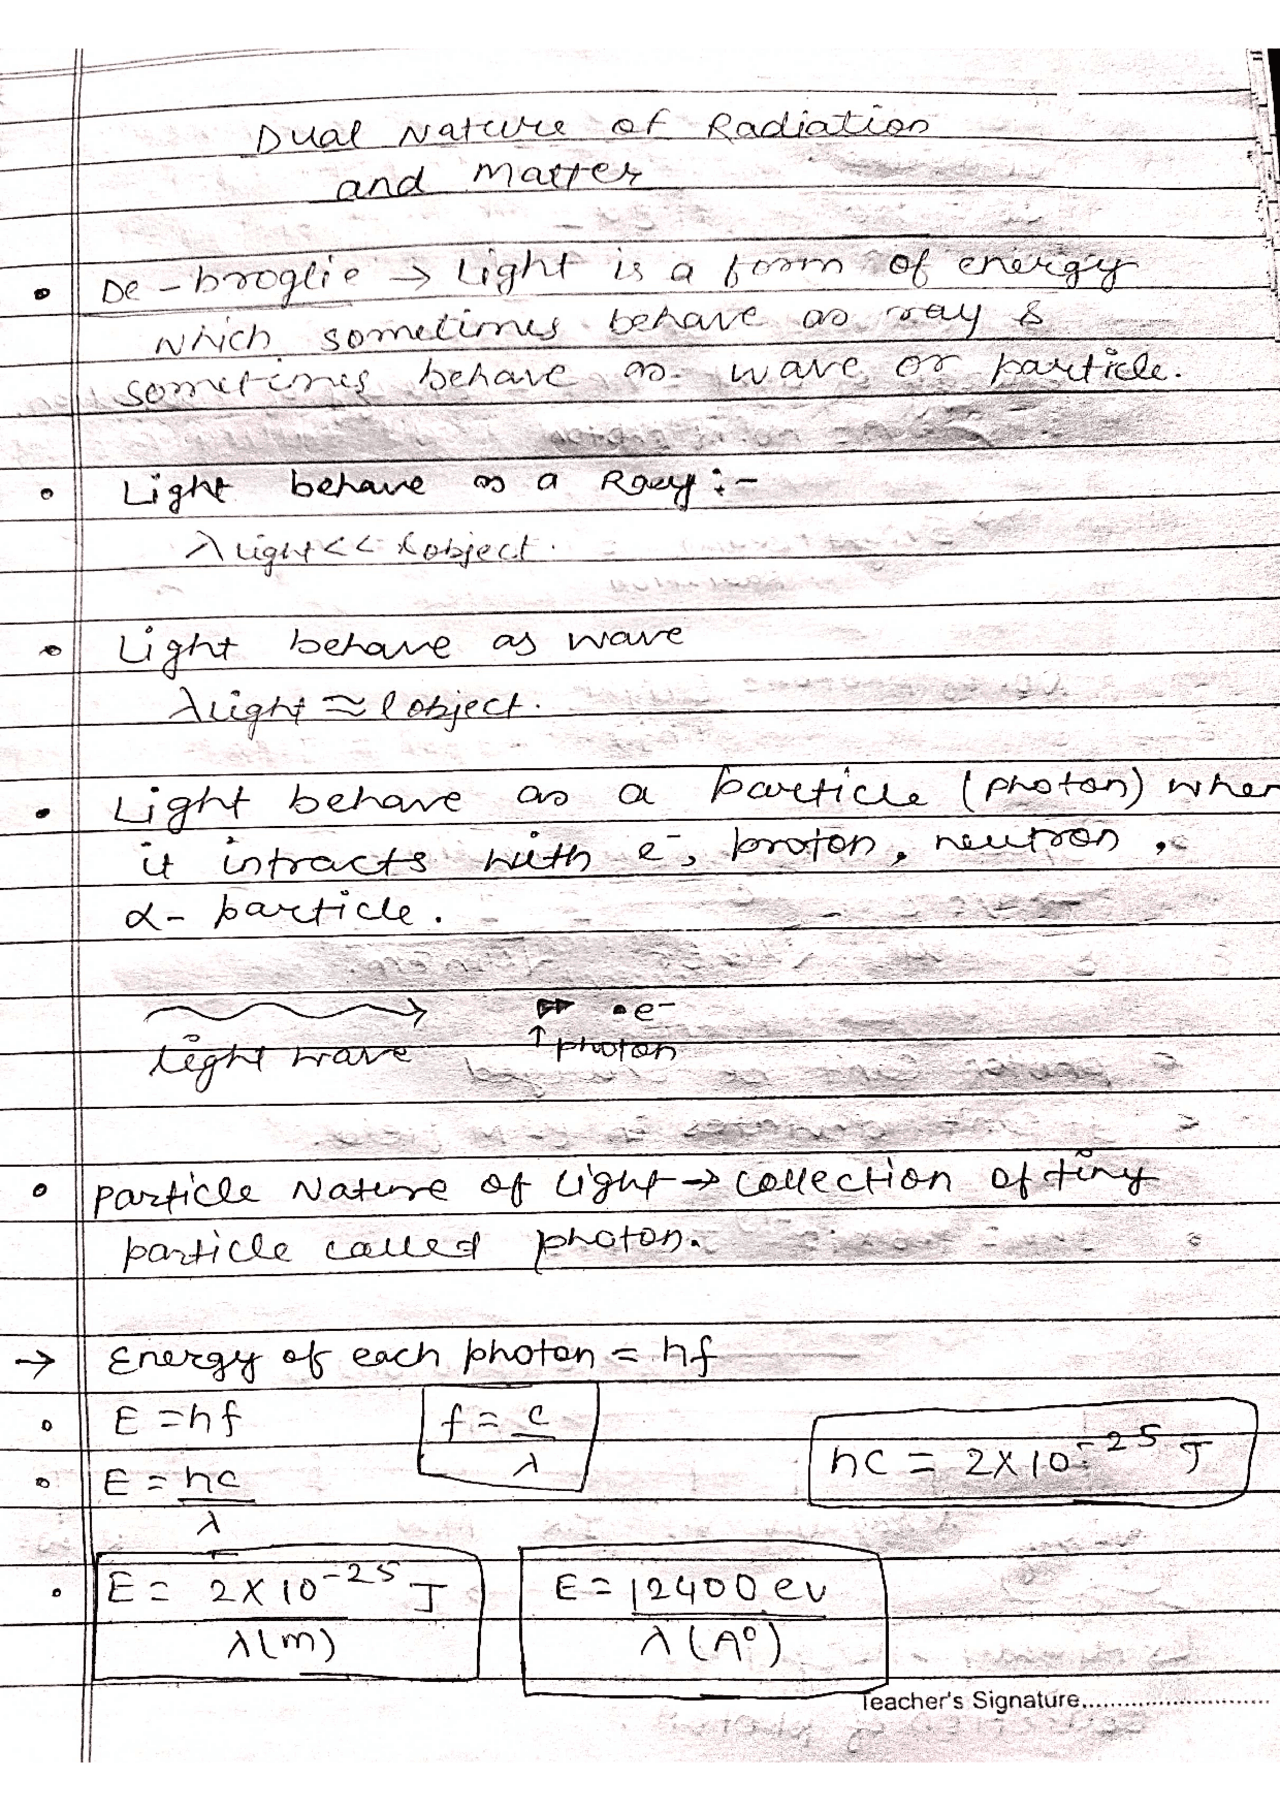 Dual Nature of Radiation
and Matter
De-broglie → Light is a form of energy
which sometimes behave as ray &
sometimes behave as wave or particle.
Light behave as a Ray :-
λlight << lobject.
Light behave as wave
λlight ≈ lobject.
Light behave as a particle (photon) when
it intracts with e⁻, proton, neutron,
α- particle.
•e⁻
light wave ↑ photon
Particle Nature of Light → collection of tiny
particle called photon.
→ Energy of each photon = hf
E = hf f = c/λ hc = 2×10⁻²⁵ J
E = hc/λ
E = 2×10⁻²⁵ J/λ(m) E = 12400 ev/λ(A°)
Teacher's Signature..............................